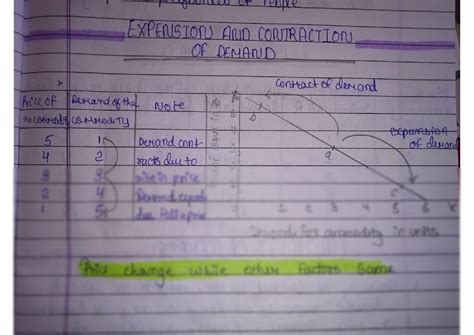 EXPENSION AND CONTRACTION
OF DEMAND
contract of demand
Price of Demand of the Note
the commodity commodity
5 1 Demand cont-
4 2 racts due to
3 3 rise in price
2 4 Demand
1 5 due
b
a
c
expansion
of demand
1 2 3 4 5 6 x
Demand for commodity in units
Price change while other factors same